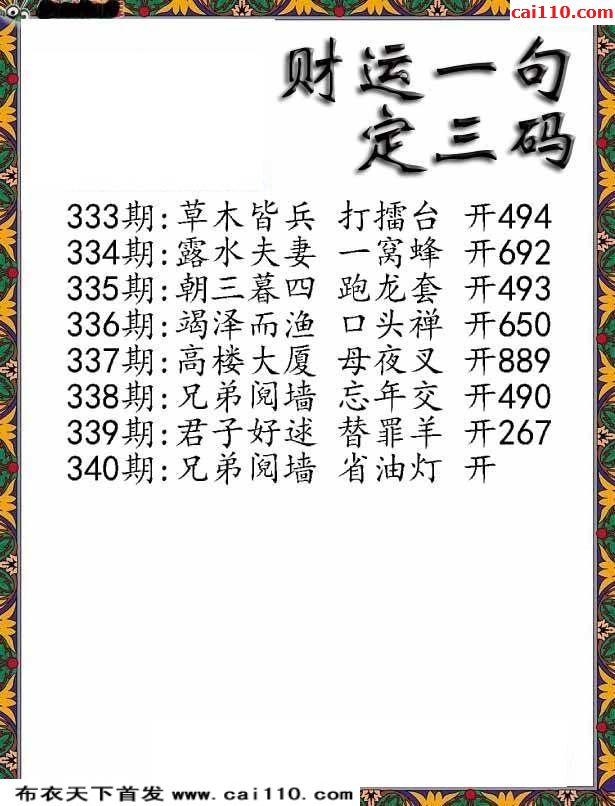 cai110.com
财运一句
定三码
333期:草木皆兵 打擂台 开494
334期:露水夫妻 一窝蜂 开692
335期:朝三暮四 跑龙套 开493
336期:竭泽而渔 口头禅 开650
337期:高楼大厦 母夜叉 开889
338期:兄弟阋墙 忘年交 开490
339期:君子好逑 替罪羊 开267
340期:兄弟阋墙 省油灯 开
布衣天下首发 www.cai110.com